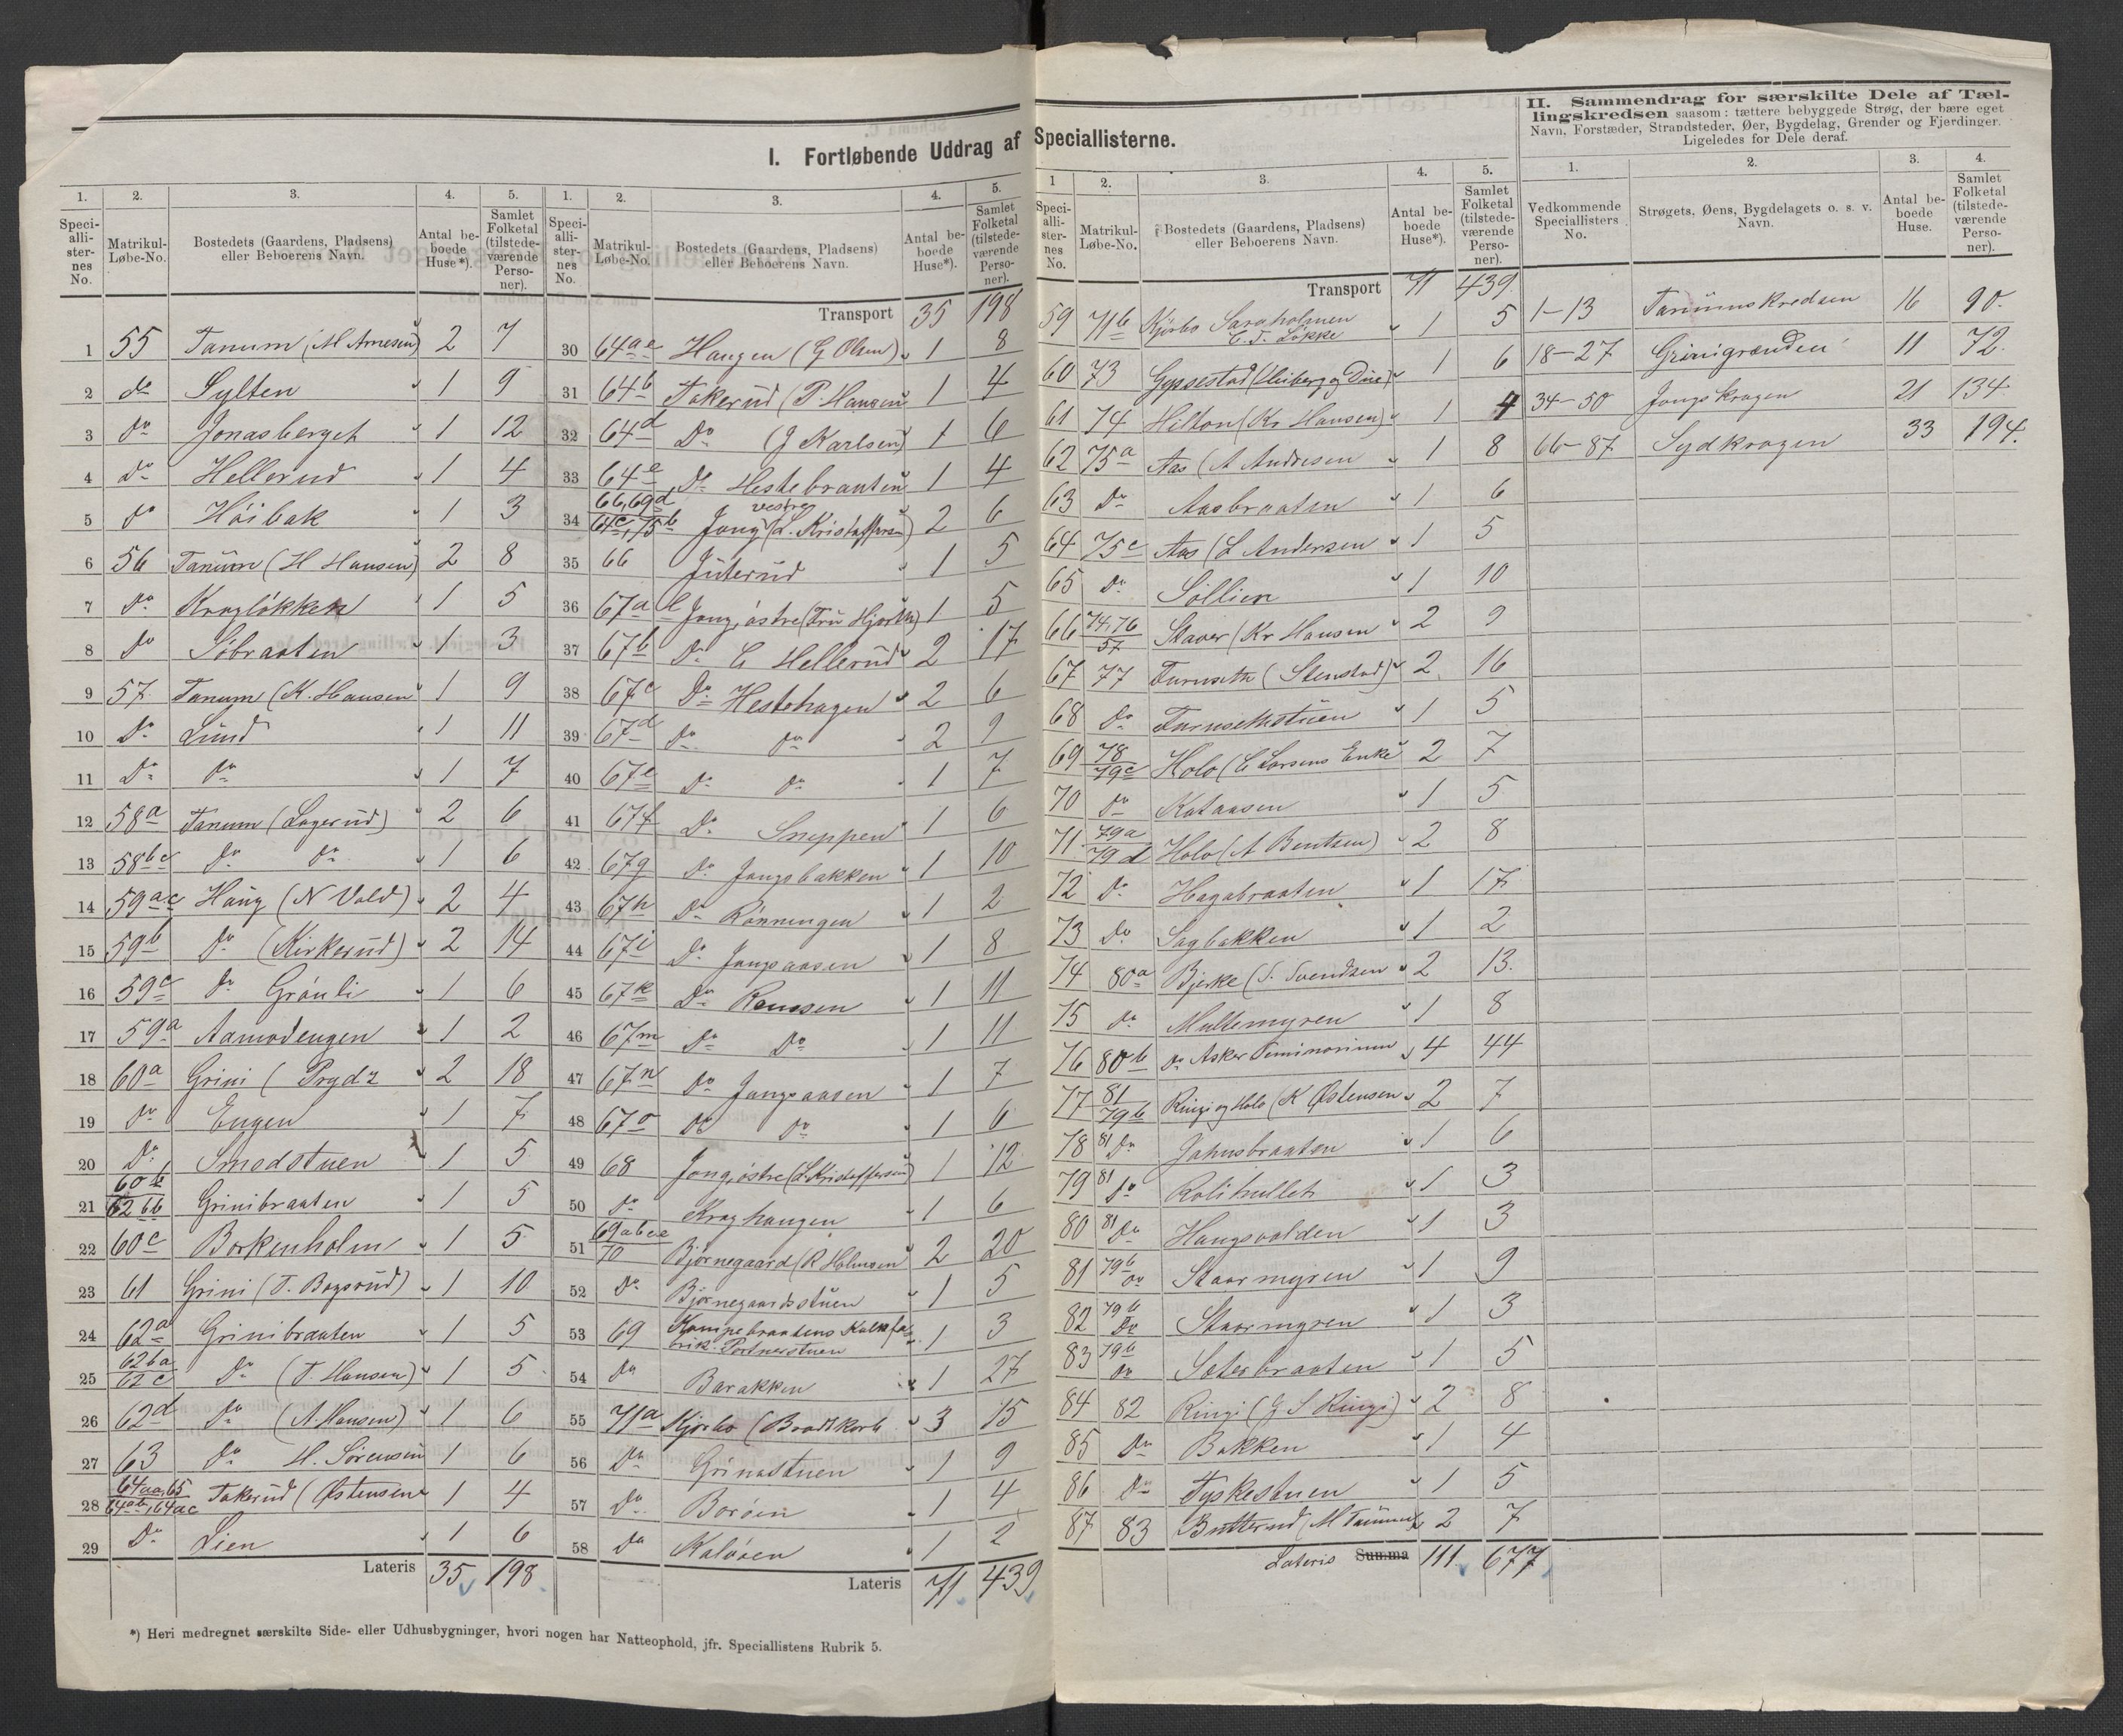 I. Fortløbende Uddrag af Speciallisterne.
1. 2. 3. 4. 5.
Speci-alli-ster-nes No. Matrikul-Løbe-No. Bostedets (Gaardens, Pladsens) eller Beboerens Navn. Antal be-boede Huse*). Samlet Folketal (tilstede-værende Perso-ner).
1 55 Tanum (M Arnesen) 2 7
2 do Sylten 1 9
3 do Jonasberget 1 12
4 do Hellerud 1 4
5 do Höibak 1 3
6 56 Tanum (H Hansen) 2 8
7 do Kragløkken 1 5
8 do Söbraaten 1 3
9 57 Tanum (K. Hansen 1 9
10 do Lund 1 11
11 do do 1 7
12 58a Tanum (Lagerud) 2 6
13 58bc do do 1 6
14 59ae Haug (N Vold) 2 4
15 59b do (Kirkerud) 2 14
16 59c do Grönli 1 6
17 59a Aamodengen 1 2
18 60a Grini (Prydz 2 18
19 do Engen 1 7
20 do Smedstuen 1 5
21 60b 62bb Grinibraaten 1 5
22 60c Borkenholm 1 5
23 61 Grini (T. Bagerud) 1 10
24 62a Grinibraaten 1 5
25 62ba 62c do (T. Hansen) 1 5
26 62d do (A. Hansen) 1 6
27 63 do H. Sörensen 1 6
28 64aa, 65 64ab, 64ac Takerud (Østensen 1 4
29 do Lien 1 6
Lateris 35 198
1. 2. 3. 4. 5.
Speci-alli-ster-nes No. Matrikul-Løbe-No. Bostedets (Gaardens, Pladsens) eller Beboerens Navn. Antal be-boede Huse*). Samlet Folketal (tilstede-værende Perso-ner).
Transport 35 198
30 64ae Haugen (G Olsen) 1 8
31 64b Takerud (P. Hansen 1 4
32 64d Do (J Karlsen) 1 6
33 64e Do Hestebraaten 1 4
34 66, 69d 64c, 75b Jong vestre (L. Kristoffersen) 2 6
35 66 Juterud 1 5
36 67a l Jong, østre (Fru Hjorth) 1 5
37 67b Do C Hellerud 2 17
38 67c Do Hestehagen 2 6
39 67d do do 2 9
40 67e do do 1 7
41 67f Do Sneppen 1 6
42 67g do Jongsbakken 1 10
43 67h Do Rönningen 1 2
44 67i Do Jongsaasen 1 8
45 67k Do Renssen 1 11
46 67m do Do 1 11
47 67n do Jongsaasen 1 7
48 67o do do 1 6
49 68 Jong, østre (L Kristoffersen) 1 12
50 do Kraghaugen 1 6
51 69abce 70 Bjørnegaard (R Holmsen 2 20
52 Do Bjørnegaardsstuen 1 5
53 69 Kampebraatens Kalkfabrik Portnerstuen 1 3
54 do Barakken 1 27
55 71a Kjørbo (Bradtkorb 3 15
56 Do Grinastuen 1 9
57 Do Borøen 1 4
58 do Kalvøen 1 2
Lateris 71 439
1 2. 3. 4. 5.
Speci-alli-ster-nes No. Matrikul-Løbe-No. Bostedets (Gaardens, Pladsens) eller Beboerens Navn. Antal be-boede Huse*). Samlet Folketal (tilstede-værende Perso-ner).
Transport 71 439
59 71b Kjørbo Saraholmen C. F. Løkke 1 5
60 73 Gyssestad (Heiberg og Due) 1 6
61 74 Hilton (Kr Hansen) 1 4
62 75a Aas (A Andresen 1 8
63 do Aasbraaten 1 6
64 75c Aas (L Andersen 1 5
65 do Sollien 1 10
66 74, 76 57 Staver (Kr Hansen 2 9
67 77 Furuseth (Stenstad) 2 16
68 do Furusethstuen 1 5
69 78 79c Holo (C Larsens Enke 2 7
70 do Kataasen 1 5
71 79a 79d Holo (A Bentsen) 2 8
72 do Hagabraaten 1 17
73 Do Sagbakken 1 2
74 80a Bjerke (S. Svendsen 2 13
75 do Multemyren 1 8
76 80b do Asker Seminarium 4 44
77 81 79b Ringi og Holo (K Østensen 2 7
78 81 Do Jahnsbraaten 1 6
79 81 do Rolihullet 1 3
80 81 Do Haugsvolden 1 3
81 79b do Staurmyren 1 9
82 79b Do Staurmyren 1 3
83 79b do Sæterbraaten 1 5
84 82 Ringi (G S Ringi) 2 8
85 Do Bakken 1 4
86 Do Tyskestuen 1 5
87 83 Butterud (M Tanum 2 7
Lateris Summa 111 677
II. Sammendrag for særskilte Dele af Tæl-
lingskredsen saasom: tættere bebyggede Strøg, der bære eget
Navn, Forstæder, Strandsteder, Øer, Bygdelag, Grender og Fjerdinger.
Ligeledes for Dele deraf.
1. 2. 3. 4.
Vedkommende Speciallisters No. Strøgets, Øens, Bygdelagets o. s. v. Navn. Antal be-boede Huse. Samlet Folketal (tilstede-værende Perso-ner).
1-13 Tanumskredsen 16 90.
18-27 Grinigrænden 11 72.
34-50 Jongskragen 21 134
66-87 Sydkragen 33 194.
*) Heri medregnet særskilte Side- eller Udhusbygninger, hvori nogen har Natteophold, jfr. Speciallistens Rubrik 5.